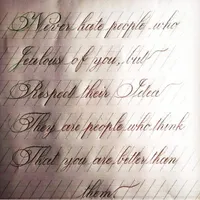 Never hate people who
Jealous of you, but
Respect their Idea
They are people who think
That you are better than
them